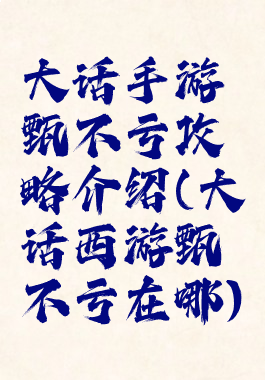 大话手游
甄不亏攻
略介绍(大
话西游甄
不亏在哪)